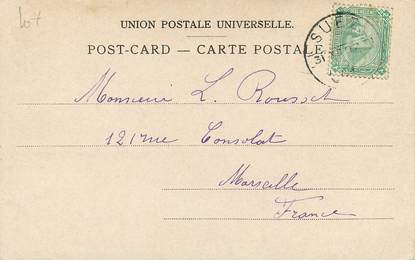 lot
UNION POSTALE UNIVERSELLE.
POST-CARD — CARTE POSTALE
SUEZ
Monsieur L. Rousset
121 rue Consolat
Marseille
France